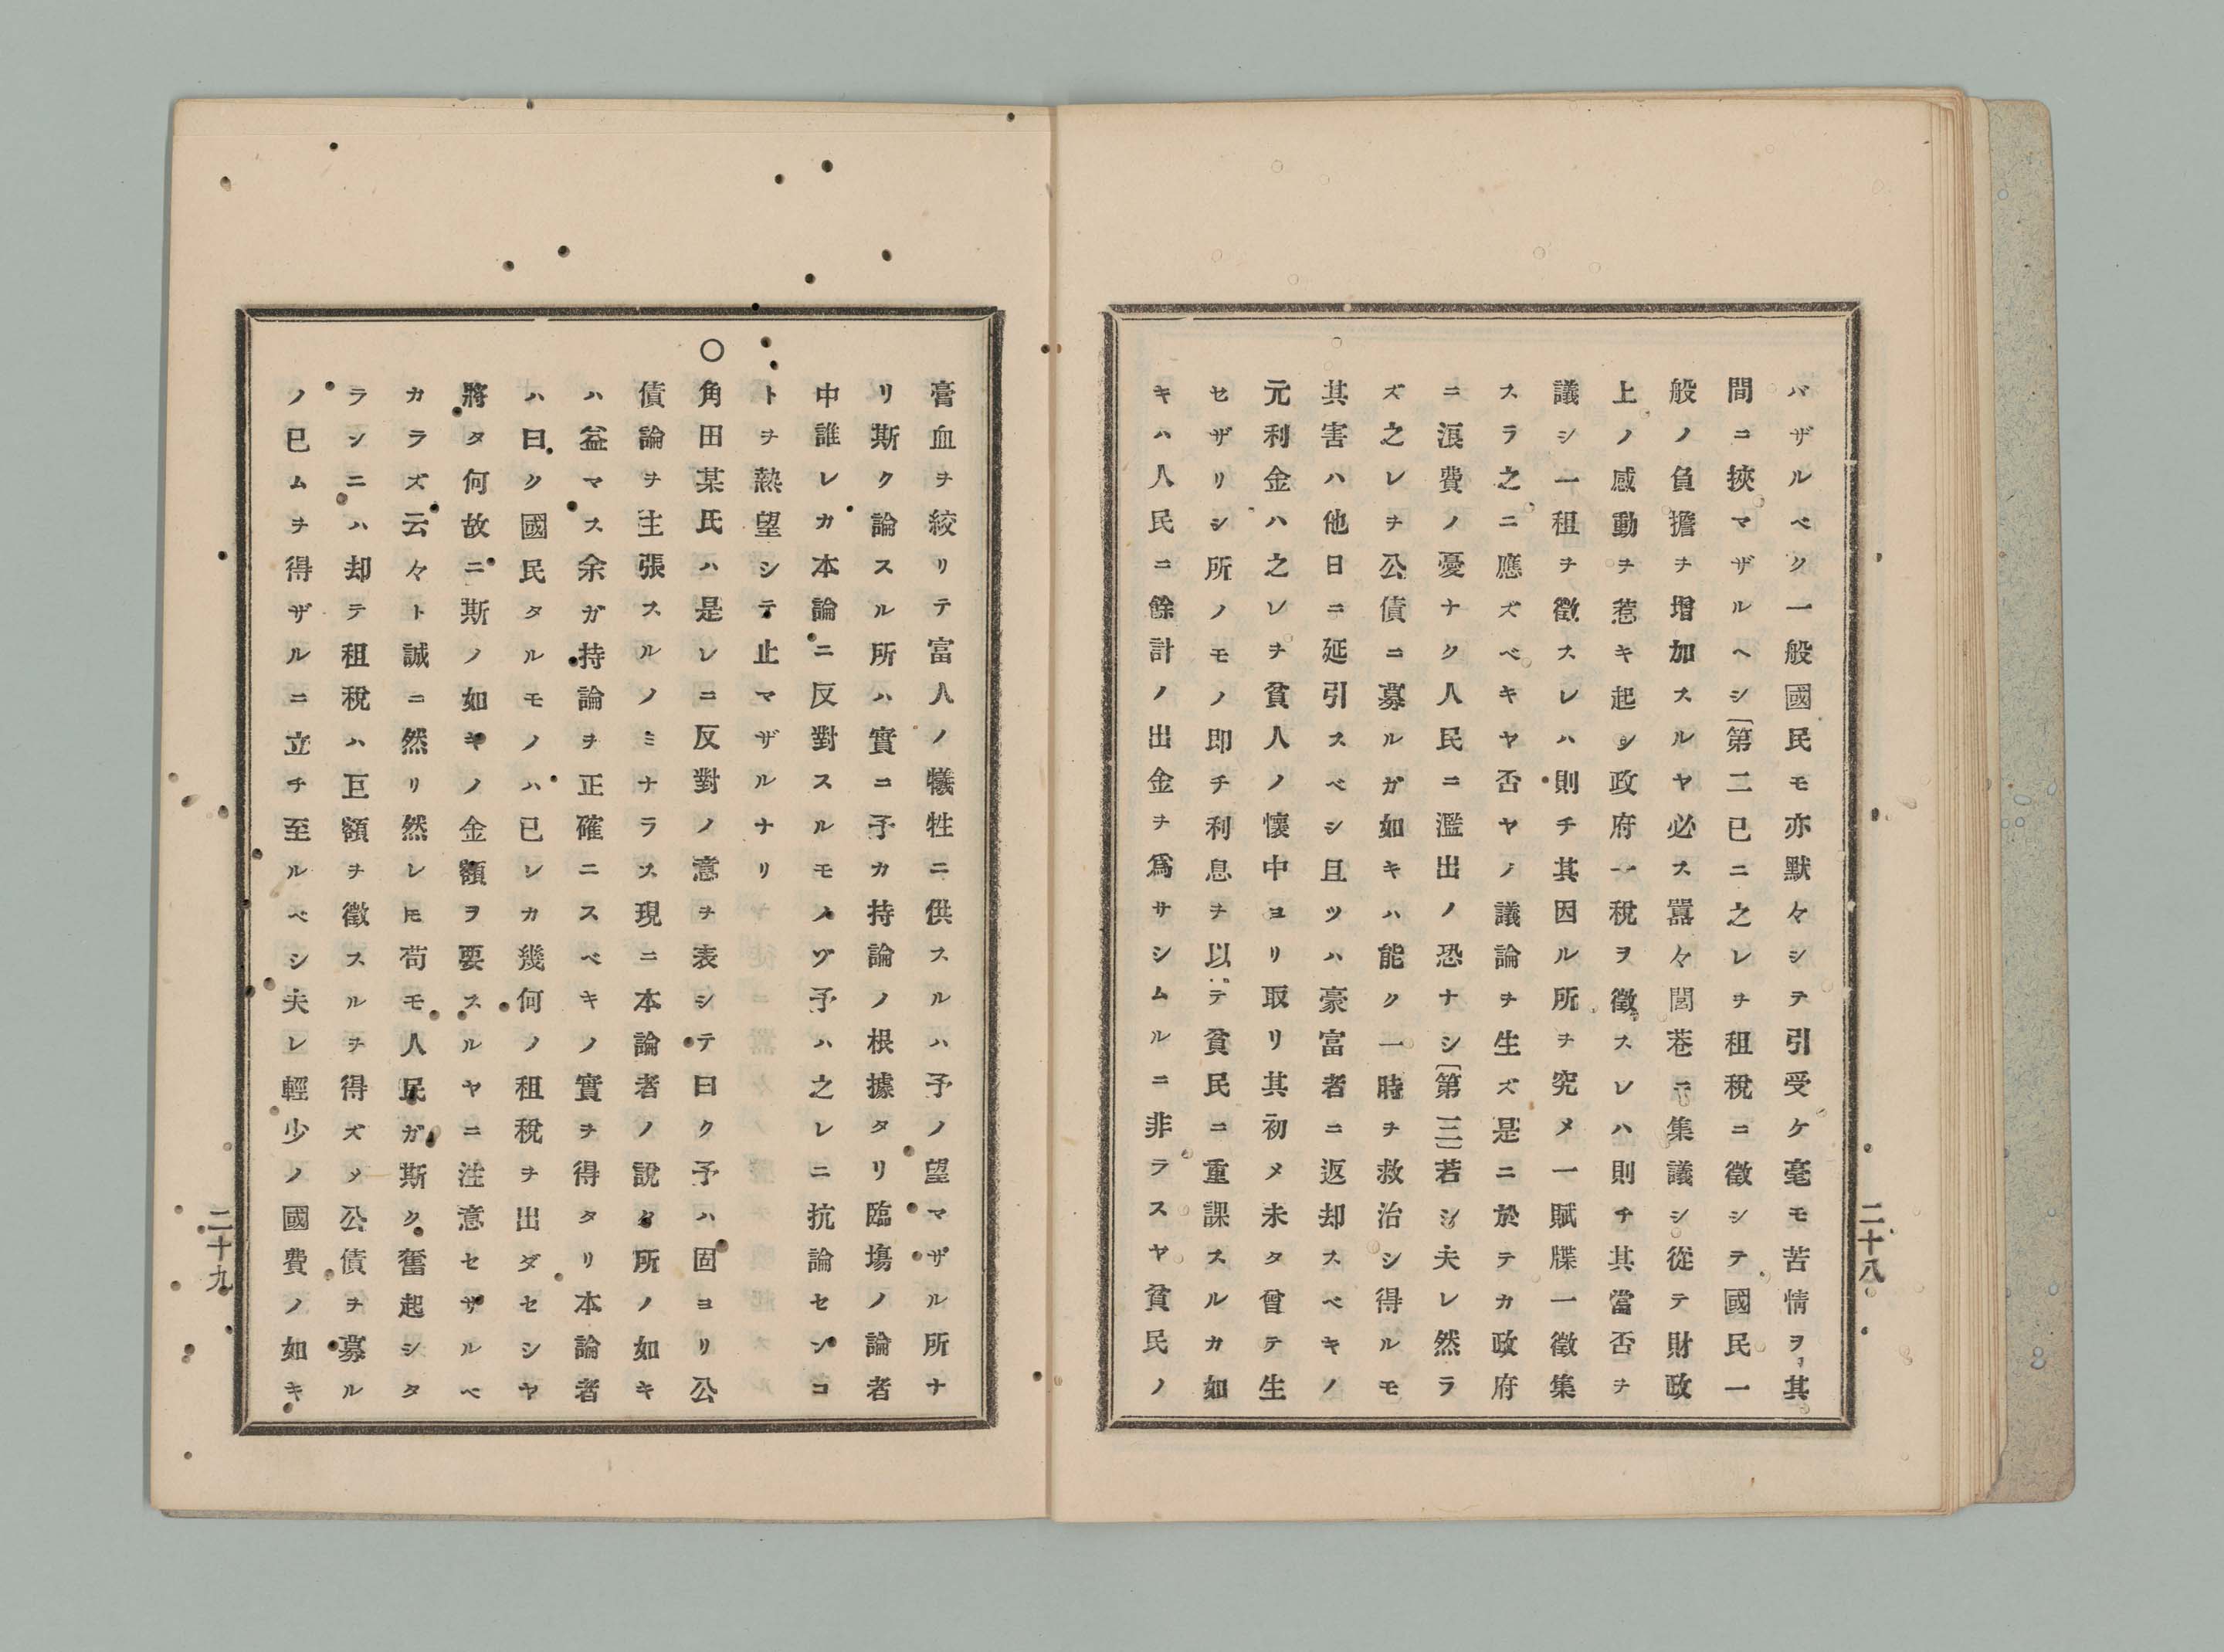 バザルベク一般國民モ亦默々シテ引受ケ毫モ苦情ヲ其
間ニ挾マザルヘシ(第二)已ニ之レヲ租稅ニ徵シテ國民一
般ノ負擔ヲ增加スルヤ必ス囂々閭巷ニ集議シ從テ財政
上ノ感動ヲ惹キ起シ政府一稅ヲ徵スレハ則チ其當否ヲ
議シ一租ヲ徵スレハ則チ其因ル所ヲ究メ一賦牒一徵集
スラ之ニ應ズベキヤ否ヤノ議論ヲ生ズ是ニ於テカ政府
ニ浪費ノ憂ナク人民ニ濫出ノ恐ナシ(第三)若シ夫レ然ラ
ズ之レヲ公債ニ募ルガ如キハ能ク一時ヲ救治シ得ルモ
其害ハ他日ニ延引スベシ且ツハ豪富者ニ返却スベキノ
元利金ハ之レヲ貧人ノ懷中ヨリ取リ其初メ未タ曾テ生
セザリシ所ノモノ即チ利息ヲ以テ貧民ニ重課スルカ如
キハ人民ニ餘計ノ出金ヲ爲サシムルニ非ラスヤ貧民ノ
二十八
膏血ヲ絞リテ富人ノ犧牲ニ供スルハ予ノ望マザル所ナ
リ斯ク論スル所ハ實ニ予カ持論ノ根據タリ臨塲ノ論者
中誰レカ本論ニ反對スルモノゾ予ハ之レニ抗論センコ
トヲ熱望シテ止マザルナリ
○角田某氏ハ是レニ反對ノ意ヲ表シテ曰ク予ハ固ヨリ公
債論ヲ主張スルノミナラス現ニ本論者ノ說ク所ノ如キ
ハ益マス余ガ持論ヲ正確ニスベキノ實ヲ得タリ本論者
ハ曰ク國民タルモノハ已レカ幾何ノ租稅ヲ出ダセシヤ
將タ何故ニ斯ノ如キノ金額ヲ要スルヤニ注意セザルベ
カラズ云々ト誠ニ然リ然レ𪜈苟モ人民ガ斯ク奮起シタ
ランニハ却テ租稅ハ巨額ヲ徵スルヲ得ズメ公債ヲ募ル
ノ已ムヲ得ザルニ立チ至ルベシ夫レ輕少ノ國費ノ如キ
二十九